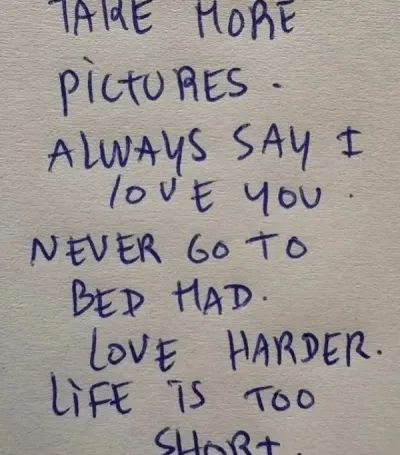 TAKE MORE
PiCtURES.
ALWAYS SAY I
lOVE YOU.
NEVER GO TO
BED MAD.
LOVE HARDER.
LiFE iS TOO
SHORt.